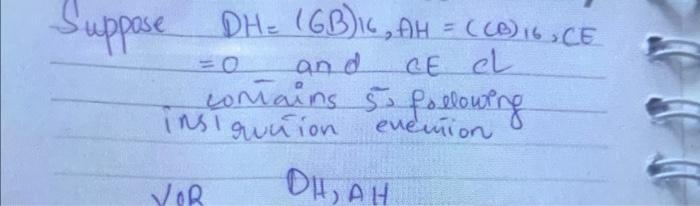 Suppose DH= (6B)16, AH = (CB)16, CE
=0 and CE CL
contains 5, following
instruction execution
XOR DH, AH